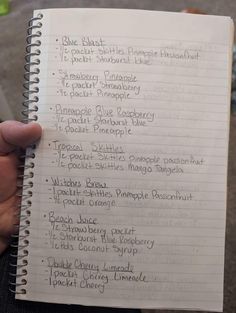 • Blue Blast
- ½ packet Skittles Pineapple Passionfruit
- ½ packet Starburst blue
• Strawberry Pineapple
- ½ packet Strawberry
- ½ packet Pineapple
• Pineapple Blue Raspberry
- ½ packet Starburst blue
- ½ packet Pineapple
• Tropical Skittles
- ½ packet Skittles pineapple passionfruit
- ½ packet Skittles Mango Tangelo
• Witches Brew
- 1 packet Skittles Pineapple Passionfruit
- ½ packet orange
• Beach Juice
- ½ Strawberry packet
- ½ Starburst Blue Raspberry
- ½ tbls Coconut Syrup
• Double Cherry Limeade
- 1 packet Cherry Limeade
- 1 packet Cherry